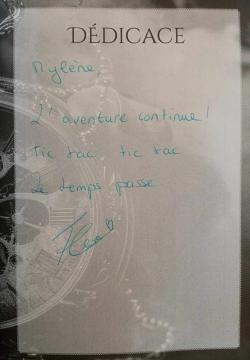 DÉDICACE
Mylène,
L'aventure continue!
Tic tac tic tac
Le temps passe